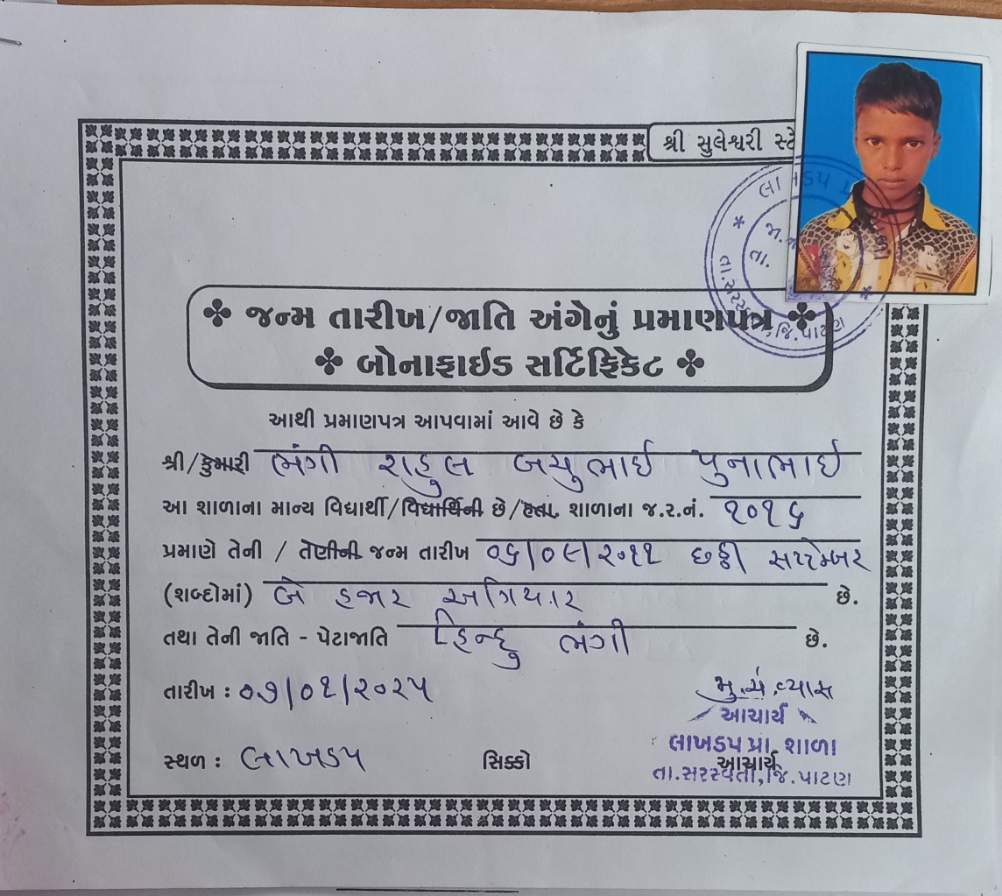 શ્રી સુલેશ્વરી સ્ટે
લાખડપ
જિ.પાટણ
❖ જન્મ તારીખ/જાતિ અંગેનું પ્રમાણપત્ર ❖
❖ બોનાફાઈડ સર્ટિફિકેટ ❖
આથી પ્રમાણપત્ર આપવામાં આવે છે કે
શ્રી/કુમારી ભંગી રાહુલ જયુભાઈ પુનાભાઈ
આ શાળાના માન્ય વિધાર્થી/વિધાર્થિની છે/હતા. શાળાના જ.ર.નં. ૨૦૧૬
પ્રમાણે તેની / તેણીની જન્મ તારીખ ૦૬/૦૯/૨૦૧૧ છઠ્ઠી સપ્ટેમ્બર
(શબ્દોમાં) બે હજાર અગિયાર છે.
તથા તેની જાતિ - પેટાજાતિ હિન્દુ ભંગી છે.
તારીખ : ૦૭/૦૧/૨૦૨૫
વ્યાસ
આચાર્ય
લાખડપ પ્રા. શાળા
સ્થળ : લાખડપ સિક્કો આચાર્ય
તા.સરસ્વતી,જિ.પાટણ